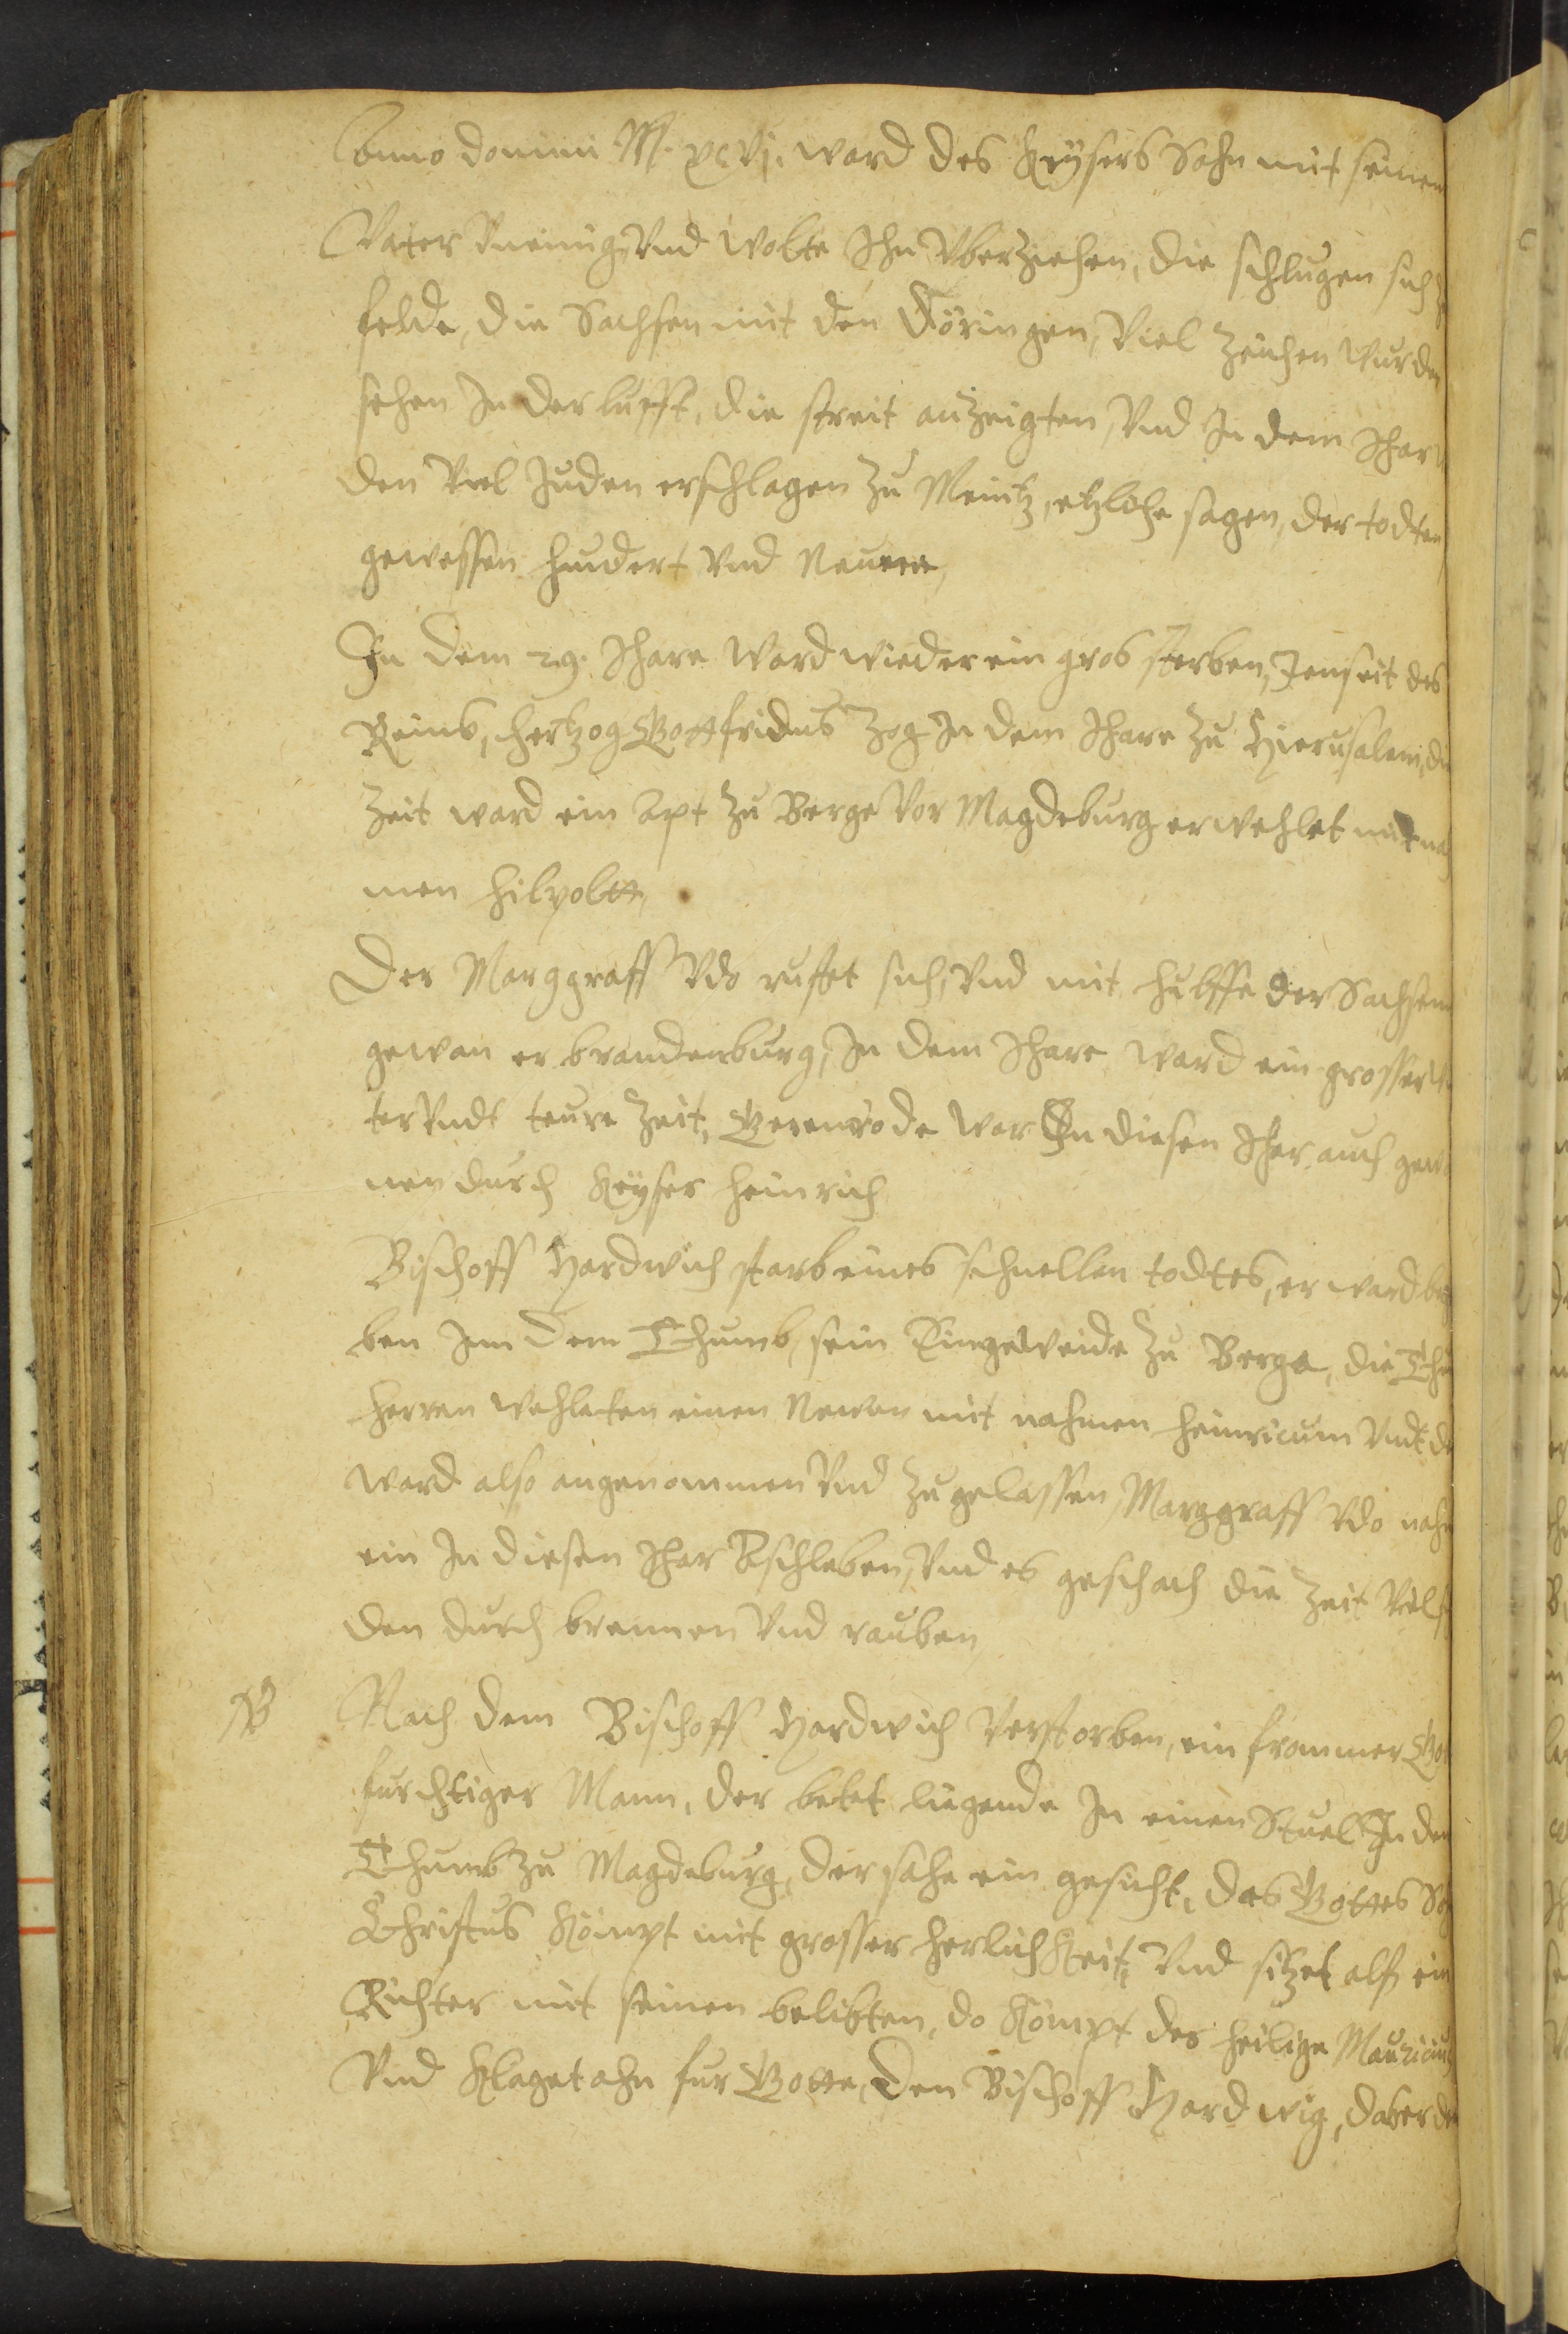 Anno domini M. xcvj. ward des Keysers Sohn mit seinen
Vater Vneinig, Vnd wolte Ihn Vberziehen, die schlugen sich
felde, die Sachsen mit den Döringen, Viel Zeichen wurden
sehen In der lufft, die streit anzeigten, Vnd In dem Ihar
den Viel Juden erschlagen Zu Meintz, etzliche sagen, der todten
gewessen hundert Vnd Neune,
In dem 29. Ihare Ward wieder ein gros sterben, Jenseit des
Reins, hertzog Gottfridus Zog In dem Ihare Zu Hierusalem, die
Zeit ward ein Apt Zu Berge Vor Magdeburg erwehlet mit na
men Hilpoltt,
Der Marggraff Vdo rustet sich, Vnd mit hulffe der Sachsen
gewan er brandenburg, In dem Ihare ward ein grosser
ter Vndt teure Zeit, Gerenrode war In diesen Ihar auch gewo
nen durch Keyser Heinrich
Bischoff Hardwich starb eines schnellen todtes, er ward
ben Inn dem Thumb, sein Eingeweide Zu Berge, die Thu
herren wehleten einen Newen mit nahmen Heinricum Vndt
ward also angenommen Vnd Zu gelassen, Marggraff Vdo nahm
ein In diesen Ihar Aschleben, Vnd es geschach die Zeit Viel
den durch brennen Vnd rauben,
NB Nach dem Bischoff Hardwich Verstorben, ein frommer Got
furchtiger Mann, der betet liegende In einen Stuel In den
Thumb Zu Magdeburg, der sahe ein gesicht, das Gottes
Christus Kömpt mit grosser herlichkeit, Vnd sitzet alss ein
Richter mit seinen belibten, do Kömpt der heilige Mauricius
Vnd Klaget ahn fur Gotte, Den Bischoff Hardwig, daß er